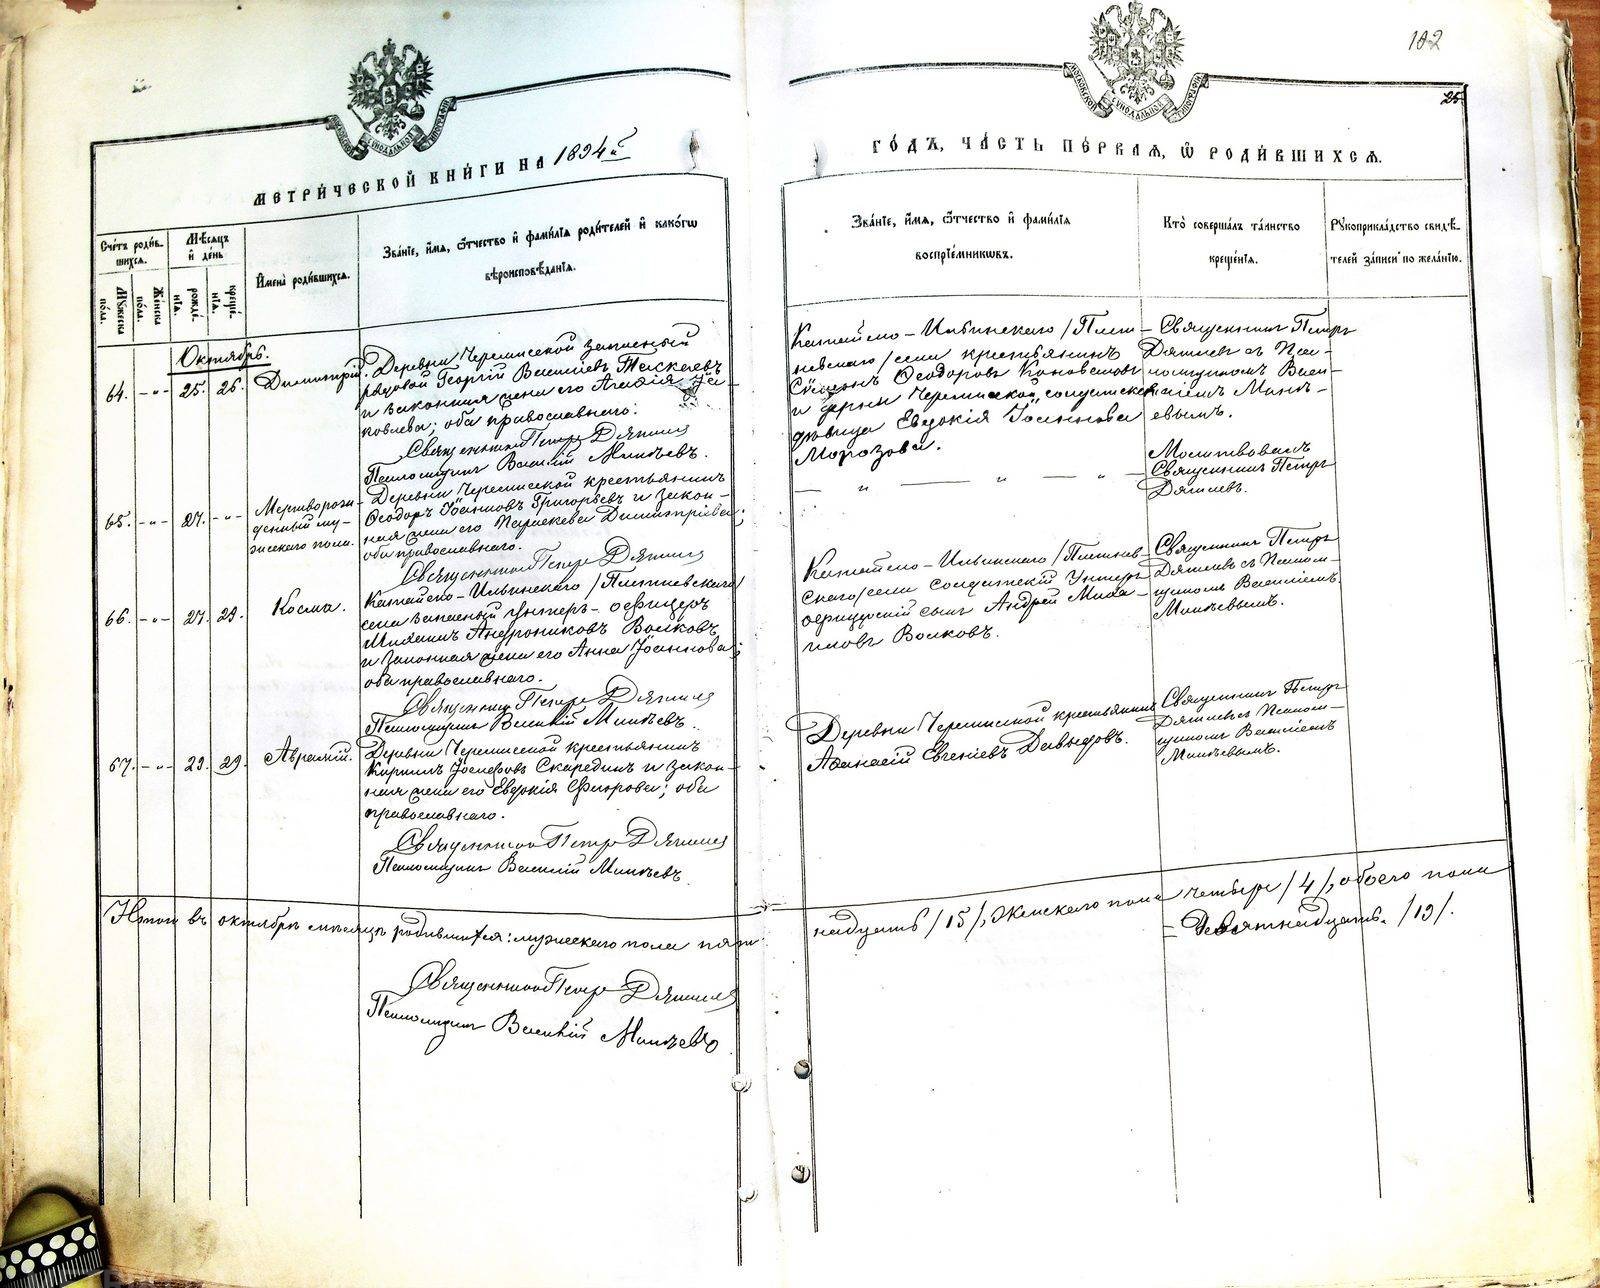 102
25.
МОСКОВСКОЙ СУНОДАЛЬНОЙ ТИПОГРАФІИ
МОСКОВСКОЙ СУНОДАЛЬНОЙ ТИПОГРАФІИ
МЕТРИ́ЧЕСКОЙ КНИ́ГИ НА 1894й
ГО́ДЪ, ЧА́СТЬ ПЕ́РВАЯ, Ѽ РОДИ́ВШИХСЯ.
Сче́тъ роди́в-
шихся.
Мѣ́сяцъ
и́ де́нь
Имена̀ роди́вшихся.
Зва́нїе, и́мя, ѻ҆́тчество и҆ фами́лїя роди́телей и҆ како́гѡ
вѣроисповѣ́данїя.
Му́жеска
по́ла.
Же́нска
по́ла.
рожде́-
нїя.
креще́-
нїя.
Зва́нїе, и́мя, ѻ҆́тчество и҆ фами́лїя
воспрїе́мникѡвъ.
Кто̀ соверша́лъ та́инство
креще́нїя.
Рукоприкла́дство свидѣ́-
телей за́писи по жела́нїю.
Октябрь.
64. -"- 25. 26. Димитрій.
Деревни Черемисской запасный
рядовой Георгій Василіевъ
и законная жена его Агафія Іа-
ковлева; оба православнаго.
Священникъ Петръ Дягилев
Псаломщикъ Василій Минѣевъ.
Катайско-Ильинскаго /Плет-
невскаго/ села крестьянинъ
Симеонъ Ѳеодоровъ Коноваловъ
и дерни Черемисской, солдатская
дѣвица Евдокія Іоаннова
Морозова.
Священникъ Петръ
Дягилевъ съ Псал-
ломщикомъ Васи-
ліемъ Минѣ-
евымъ.
65. -"- 27. -"- Мертворож-
денный му-
жескаго пола.
Деревни Черемисской крестьянинъ
Ѳеодоръ Іоанновъ Григорьевъ и закон-
ная жена его Параскева Димитріева;
оба православнаго.
Священникъ Петръ Дягилев
— " — " — " —
Молитвовалъ
Священникъ Петръ
Дягилевъ.
66. -"- 27. 29. Косма.
Катайско-Ильинскаго /Плетневскаго/
села запасный Унтеръ-офицеръ
Михаилъ Андрониковъ Волковъ
и законная жена его Анна Іоаннова;
оба православнаго.
Священникъ Петръ Дягилев
Псаломщикъ Василій Минѣевъ.
Катайско-Ильинскаго /Плетнев-
скаго/ села солдатскій Унтеръ
офицерскій сынъ Андрей Миха-
иловъ Волковъ.
Священникъ Петръ
Дягилевъ съ Псалом-
щикомъ Василіемъ
Минѣевымъ.
67. -"- 29. 29. Аврамій.
Деревни Черемисской крестьянинъ
Кириллъ Іосифовъ Скарединъ и закон-
ная жена его Евдокія Флорова; оба
православнаго.
Священникъ Петръ Дягилев
Псаломщикъ Василій Минѣевъ.
Деревни Черемисской крестьянинъ
Аѳанасій Евгеніевъ Давыдовъ.
Священникъ Петръ
Дягилевъ съ Псалом-
щикомъ Василіемъ
Минѣевымъ.
Итого въ октябрѣ мѣсяцѣ родившихся: мужескаго пола пят-
надцать /15/, женскаго пола четыре /4/, обоего пола
= девятнадцать. /19/.
Священникъ Петръ Дягилев
Псаломщикъ Василій Минѣевъ